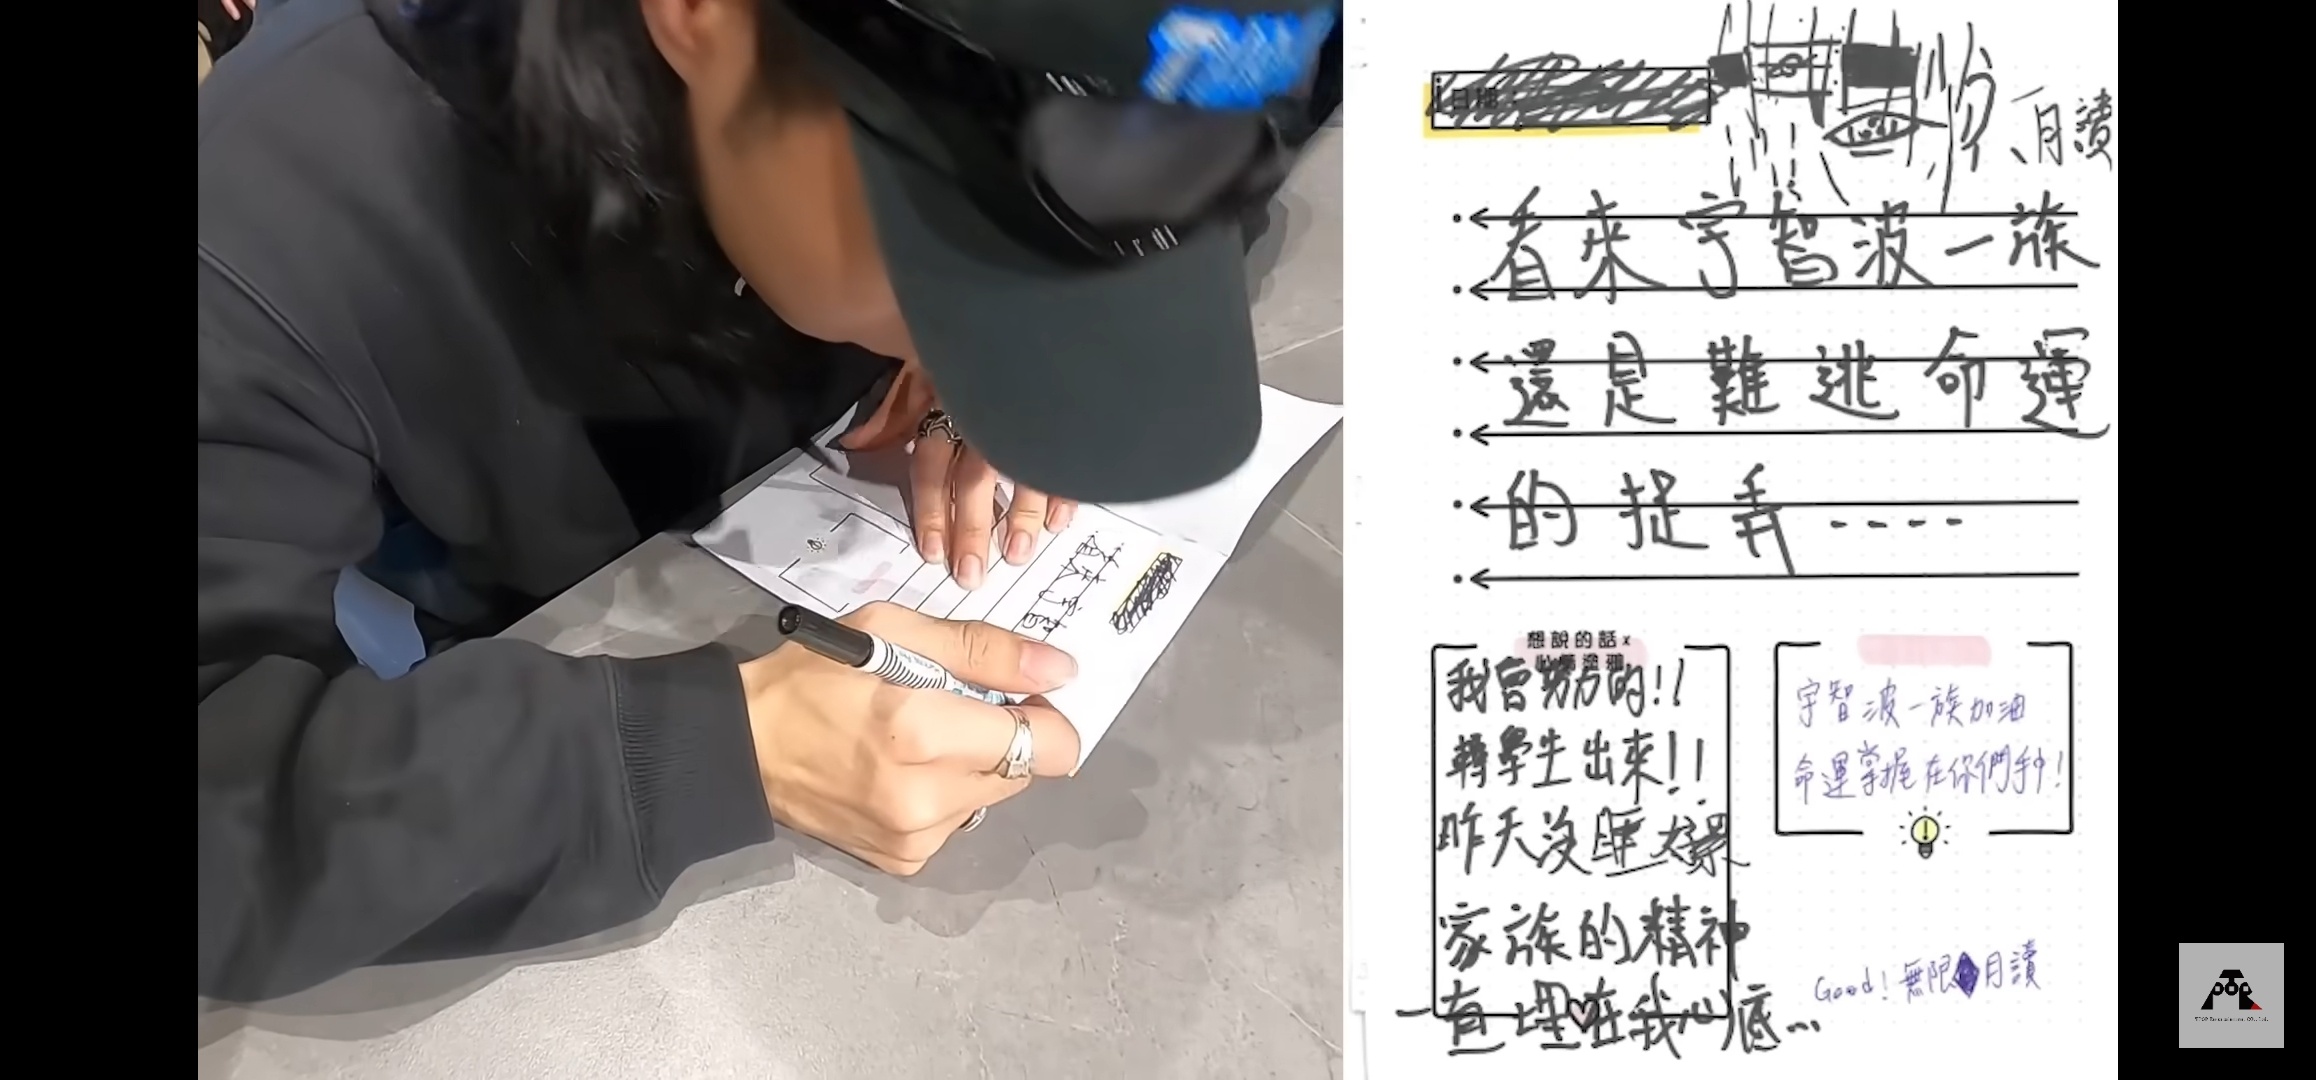 日期：
月讀
看來宇智波一族
還是難逃命運
的捉弄----
想說的話x
我會努力的!!
轉學生出來!!
昨天沒睡
家族的精神
一直埋在我心底...
宇智波一族加油
命運掌握在你們手中!
Good! 無限月讀
TPOP